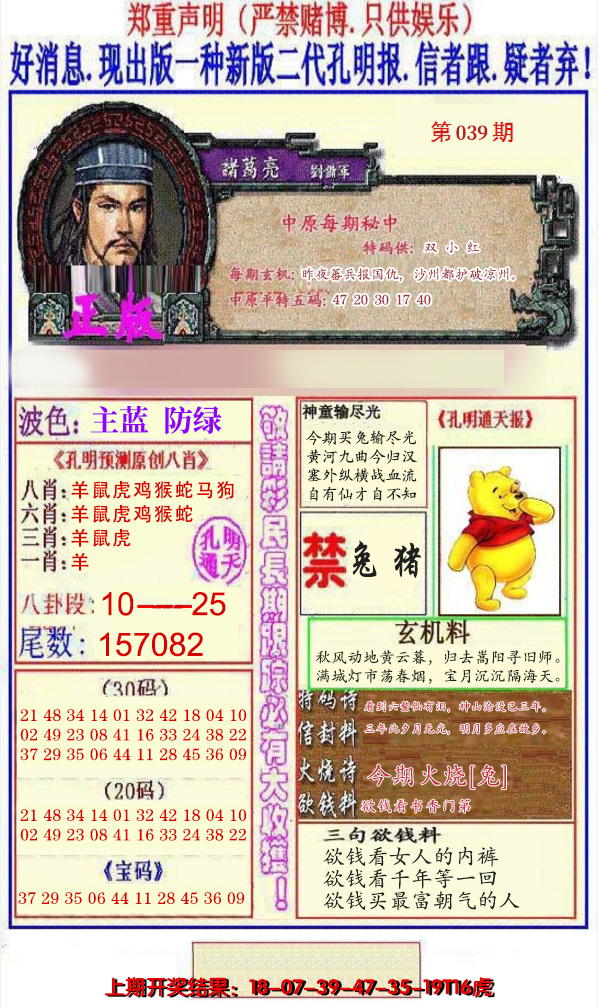 郑重声明（严禁赌博.只供娱乐）
好消息.现出版一种新版二代孔明报.信者跟.疑者弃!
第039期
諸葛亮 劉備軍
中原每期秘中
特码供: 双小红
每期玄机: 昨夜蕃兵报国仇，沙州都护破凉州。
中原平特五码: 47 20 30 17 40
正版
波色: 主蓝 防绿
《孔明预测原创八肖》
八肖:羊鼠虎鸡猴蛇马狗
六肖:羊鼠虎鸡猴蛇
三肖:羊鼠虎
一肖:羊
孔明
通天
八卦段: 10——25
尾数: 157082
（30码）
21 48 34 14 01 32 42 18 04 10
02 49 23 08 41 16 33 24 38 22
37 29 35 06 44 11 28 45 36 09
（20码）
21 48 34 14 01 32 42 18 04 10
02 49 23 08 41 16 33 24 38 22
《宝码》
37 29 35 06 44 11 28 45 36 09
敬請彩民長期跟踪必有大收獲！
神童输尽光
今期买兔输尽光
黄河九曲今归汉
塞外纵横战血流
自有仙才自不知
《孔明通天报》
禁 兔 猪
玄机料
秋风动地黄云暮，归去嵩阳寻旧师。
满城灯市荡春烟，宝月沉沉隔海天。
特码诗
信封料
看到六鳌仙有泪，神山沦没已三年。
三年此夕月无光，明月多应在故乡。
火烧诗 今期火烧[兔]
欲钱料 欲钱看书香门第
三句欲钱料
欲钱看女人的内裤
欲钱看千年等一回
欲钱买最富朝气的人
上期开奖结果：18-07-39-47-35-19T16虎